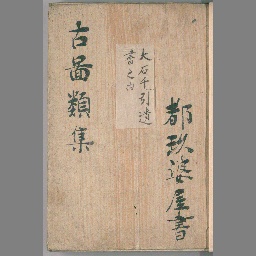 都玖婆屋書
大石千引遺
書之内
古圖類集